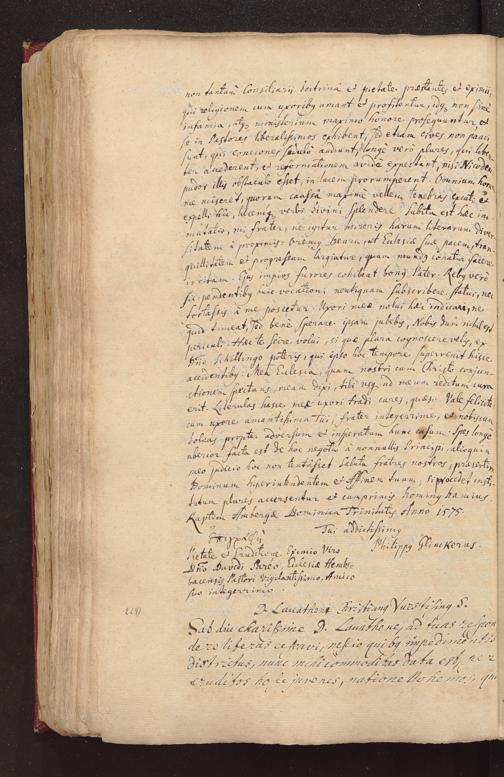 non tantum Consiliarij doctrinâ et pietate præstantes et eximij,
qui religionem cum uxoribus amant et profitentur, idq; non sine
infamia, atq; ministerium maximo honore prosequuntur et
se in Pastores liberalissimos exhibent, sed etiam cives non pauci
sunt, qui conciones sedulò audiunt, longè verò plures, qui liben-
ter accederent, et reformationem avidè expectant, nisi Nicodemi
pudor illis obstaculo esset, in lucem prorumperent. Omnium horum
me miseret, quorum caussâ maximè vellem tenebras excuti et
expelli hîc, lucemq; verbi divini splendere. Subita est hæc im-
mutatio, mi frater, ne igitur terreris harum literarum diver-
sitatem à proximis. Oremus Deum, ut Ecclesiæ suæ pacem, tran-
quillitatem et progressum largiatur, quam mundus conatur facere
irritam. Ejus impios furores cohibeat bonus Pater. Rebus verò
sic pendentibus huic vocationi neutiquam subscribere statui, ne
fortassis à me poscetur. Uxori meæ nolui hæc indicare, ne
quid timeat, sed benè sperare ipsam jubebis, Nobis duri nihil est
periculi. Hæc te scire volui, si quæ plura cognoscere velis, ex
Dno Schillingo poteris, qui ipso hoc tempore supervenit hisce
accidentibus. Mea Ecclesia, quam nostri cum Christo conjun-
ctionem spectans, meam dixi, tibi usq; ad meum reditum curæ
erit. Literulas hasce meæ uxori tradi cures, quæso. Vale feliciter
cum uxore amantissima tui, frater integerrime, et nobiscum
doleas propter adversum et insperatum hunc casum. Spes longè
uberior facta est de hoc negotio à nonnullis Principi, alioquin
meo judicio hoc non tentasset. Saluta fratres nostros, præsertim
Dominum Superintendentem et affinem tuum, si procedet insti-
tutum plures accersentur et cumprimis hominus tamius
Raptim Ambergæ Dominica Trinitatis Anno 1575.
Tui addictissimus
Philippus Glinckerus.
Ἐπιγραφή
Pietate et Eruditione Eximio Viro
Dno Davidi Pareo, Ecclesiæ Hembs-
bacensis Pastori vigilantissimo, Amico
suo integerrimo.
D. Lavathero Christianus Vurstisius S.
Sat diu charissime D. Lavathere, ad tuas respon-
dere literas cessavi, nescio quibus impedimentis
districtus, nunc mihi commoditas data est, per
eruditos hosce juvenes, natione Bohemos, qui